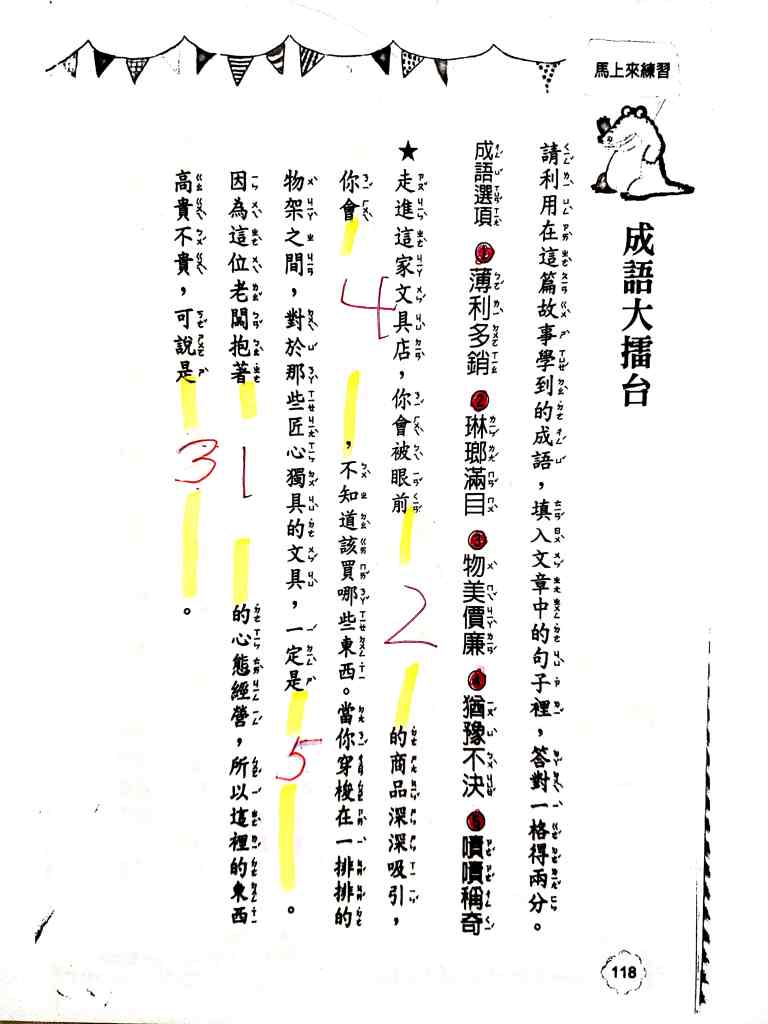 馬上來練習
成語大擂台
請利用在這篇故事學到的成語，填入文章中的句子裡，答對一格得兩分。
成語選項 ①薄利多銷 ②琳瑯滿目 ③物美價廉 ④猶豫不決 ⑤嘖嘖稱奇
★走進這家文具店，你會被眼前 2 的商品深深吸引，
你會 4 ，不知道該買哪些東西。當你穿梭在一排排的
物架之間，對於那些匠心獨具的文具，一定是 5 。
因為這位老闆抱著 1 的心態經營，所以這裡的東西
高貴不貴，可說是 3 。
118